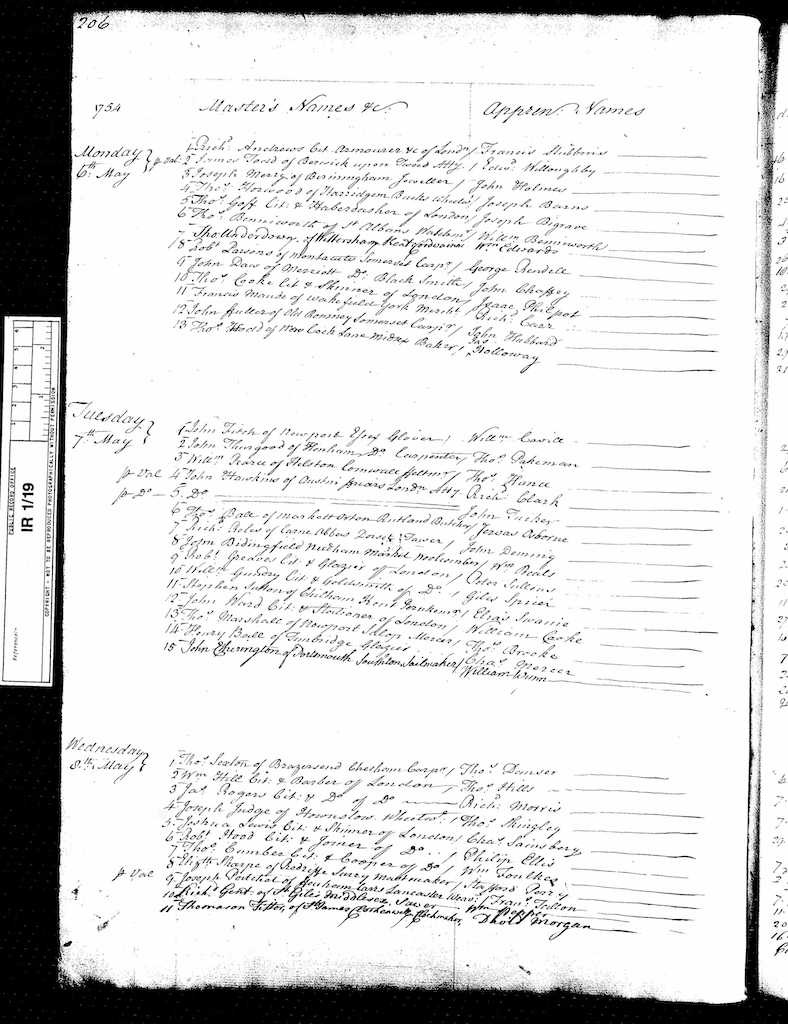 206
1754 Master's Names &c. Appren: Names
Monday 6th May
1 Richd. Andrews Cit. Armourer &c of Londn / Francis Stibbins
p Val 2 James Todd of Berwick upon Tweed Atty / Edwd. Willoughby
3 Joseph Merry of Birmingham Jeweller / John Holmes
4 Thos. Horwood of Bucks / Joseph Barns
5 Thos. Goff Cit. & Haberdasher of London / Joseph Bigrave
6 Thos. Benniworth of St Albans / Willm Benniworth
7 Tho: Underdown of Wittersham Kent Cordwainer / Wm Edwards
8 Robt. Parsons of Montacute Somerset Carpr. / George Rendell
9 John Daw of Merriott Do. Black Smith / John Chaffey
10 Thos. Coke Cit & Skinner of London / Isaac Philpot
11 Francis Maude of Wakefield York Mercht / Richd. Carr
12 John Fuller of Old Romney Somerset Carpr / John Hubbard
13 Thos. Hood of New Cock Lane Middx Baker / Jas. Holloway
Tuesday 7th May
1 John Fitch of Newport Essex Glover / Willm Cavill
2 John Thurgood of Henham Do. Carpenter / Thos. Pakeman
3 Willm Pearce of Helston Cornwall / Thos. Hance
p Val 4 John Hawkins of Austin Friars Londn Atty / Richd. Clark
p Do 5 Do. / John Tucker
6 Thos. Ball of Markett Orton Rutland Butcher / Jervas Osborne
7 Richd. Roles of Carne Abbes Dorset Tawer / John Deming
8 John Bidingfield Needham Market / Wm Beals
9 Robt. Greaves Cit & Glazier of London / Peter Sullens
10 Willm Gundry Cit & Goldsmith of Do. / Giles Spicer
11 Stephen Sutton of Chilham Kent / Elias Swanie
12 John Ward Cit & Stationer of London / William Cooke
13 Thos. Marshall of Newport Salop Mercer / Thos. Brooke
14 Henry Ball of Tunbridge Glazier / Chas. Mercer
15 John Cherrington of Portsmouth Southton Sailmaker / William Wynn
Wednesday 8th May
1 Thos. Sexton of Brazersend Chesham Carpr. / Thos. Demser
2 Wm Hill Cit: & Barber of London / Thos. Hills
3 Jas. Rogers Cit: & Do of Do / Richd. Morris
4 Joseph Judge of Hownslow / Thos. Shingley
5 Joshua Lewis Cit: & Skinner of London / Chas. Sainsbery
6 Robt. Hood Cit: & Joiner of Do / Philip Ellis
7 Thos. Cumber Cit: & Cooper of Do / Wm Foulkes
8 Elizth Sharpe of Redriffe Surry Mantmaker / Stafford Perry
p Val 9 Joseph Pilchet of Lancaster Weaver / Frans. Tutton
10 Richd. Gent. of St Giles Middlesex / Wm Hopper
11 Thomason Fitter of St James Clockmaker, Morgan
PUBLIC RECORD OFFICE
IR 1/19
Reference:-
COPYRIGHT - NOT TO BE REPRODUCED PHOTOGRAPHICALLY WITHOUT PERMISSION